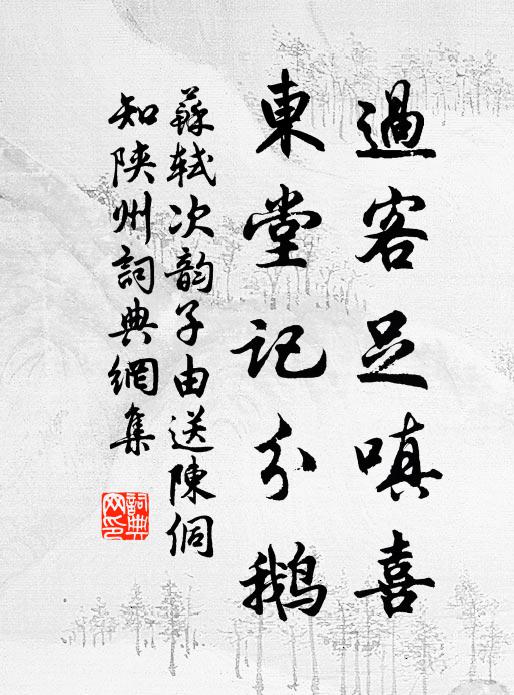 過客足嗔喜
東堂記分鵝
蘇軾次韵子由送陳侗
知陝州詞典網集
詞典網印